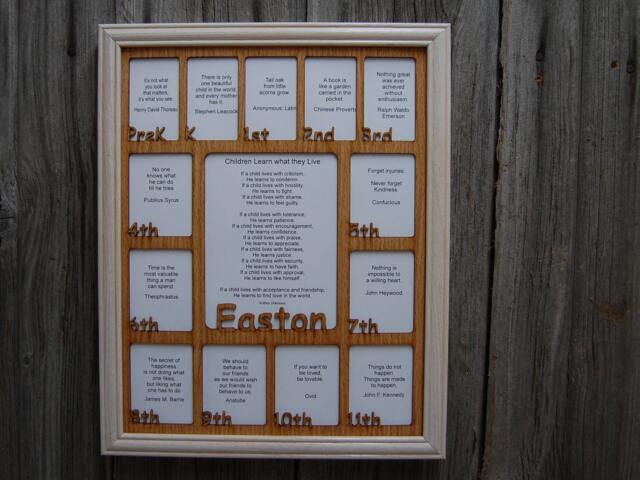 It's not what
you look at
that matters,
it's what you see.
Henry David Thoreau
PreK
There is only
one beautiful
child in the world
and every mother
has it.
Stephen Leacock
K
Tall oak
from little
acorns grow.
Anonymous: Latin
1st
A book is
like a garden
carried in the
pocket.
Chinese Proverb
2nd
Nothing great
was ever
achieved
without
enthusiasm.
Ralph Waldo
Emerson
3rd
No one
knows what
he can do
till he tries
Publius Syrus
4th
Children Learn what they Live
If a child lives with criticism,
He learns to condemn.
If a child lives with hostility,
He learns to fight
If a child lives with shame,
He learns to feel guilty.
If a child lives with tolerance,
He learns patience.
If a child lives with encouragement,
He learns confidence.
If a child lives with praise,
He learns to appreciate.
If a child lives with fairness,
He learns justice
If a child lives with security,
He learns to have faith.
If a child lives with approval,
He learns to like himself.
If a child lives with acceptance and friendship,
He learns to find love in the world.
Author Unknown
Easton
Forget injuries
Never forget
Kindness
Confucious
5th
Time is the
most valuable
thing a man
can spend.
Theophrastus
6th
Nothing is
impossible to
a willing heart.
John Heywood
7th
The secret of
happiness
is not doing what
one likes,
but liking what
one has to do
James M. Barrie
8th
We should
behave to
our friends
as we would wish
our friends to
behave to us.
Aristotle
9th
If you want to
be loved,
be lovable.
Ovid
10th
Things do not
happen.
Things are made
to happen.
John F. Kennedy
11th